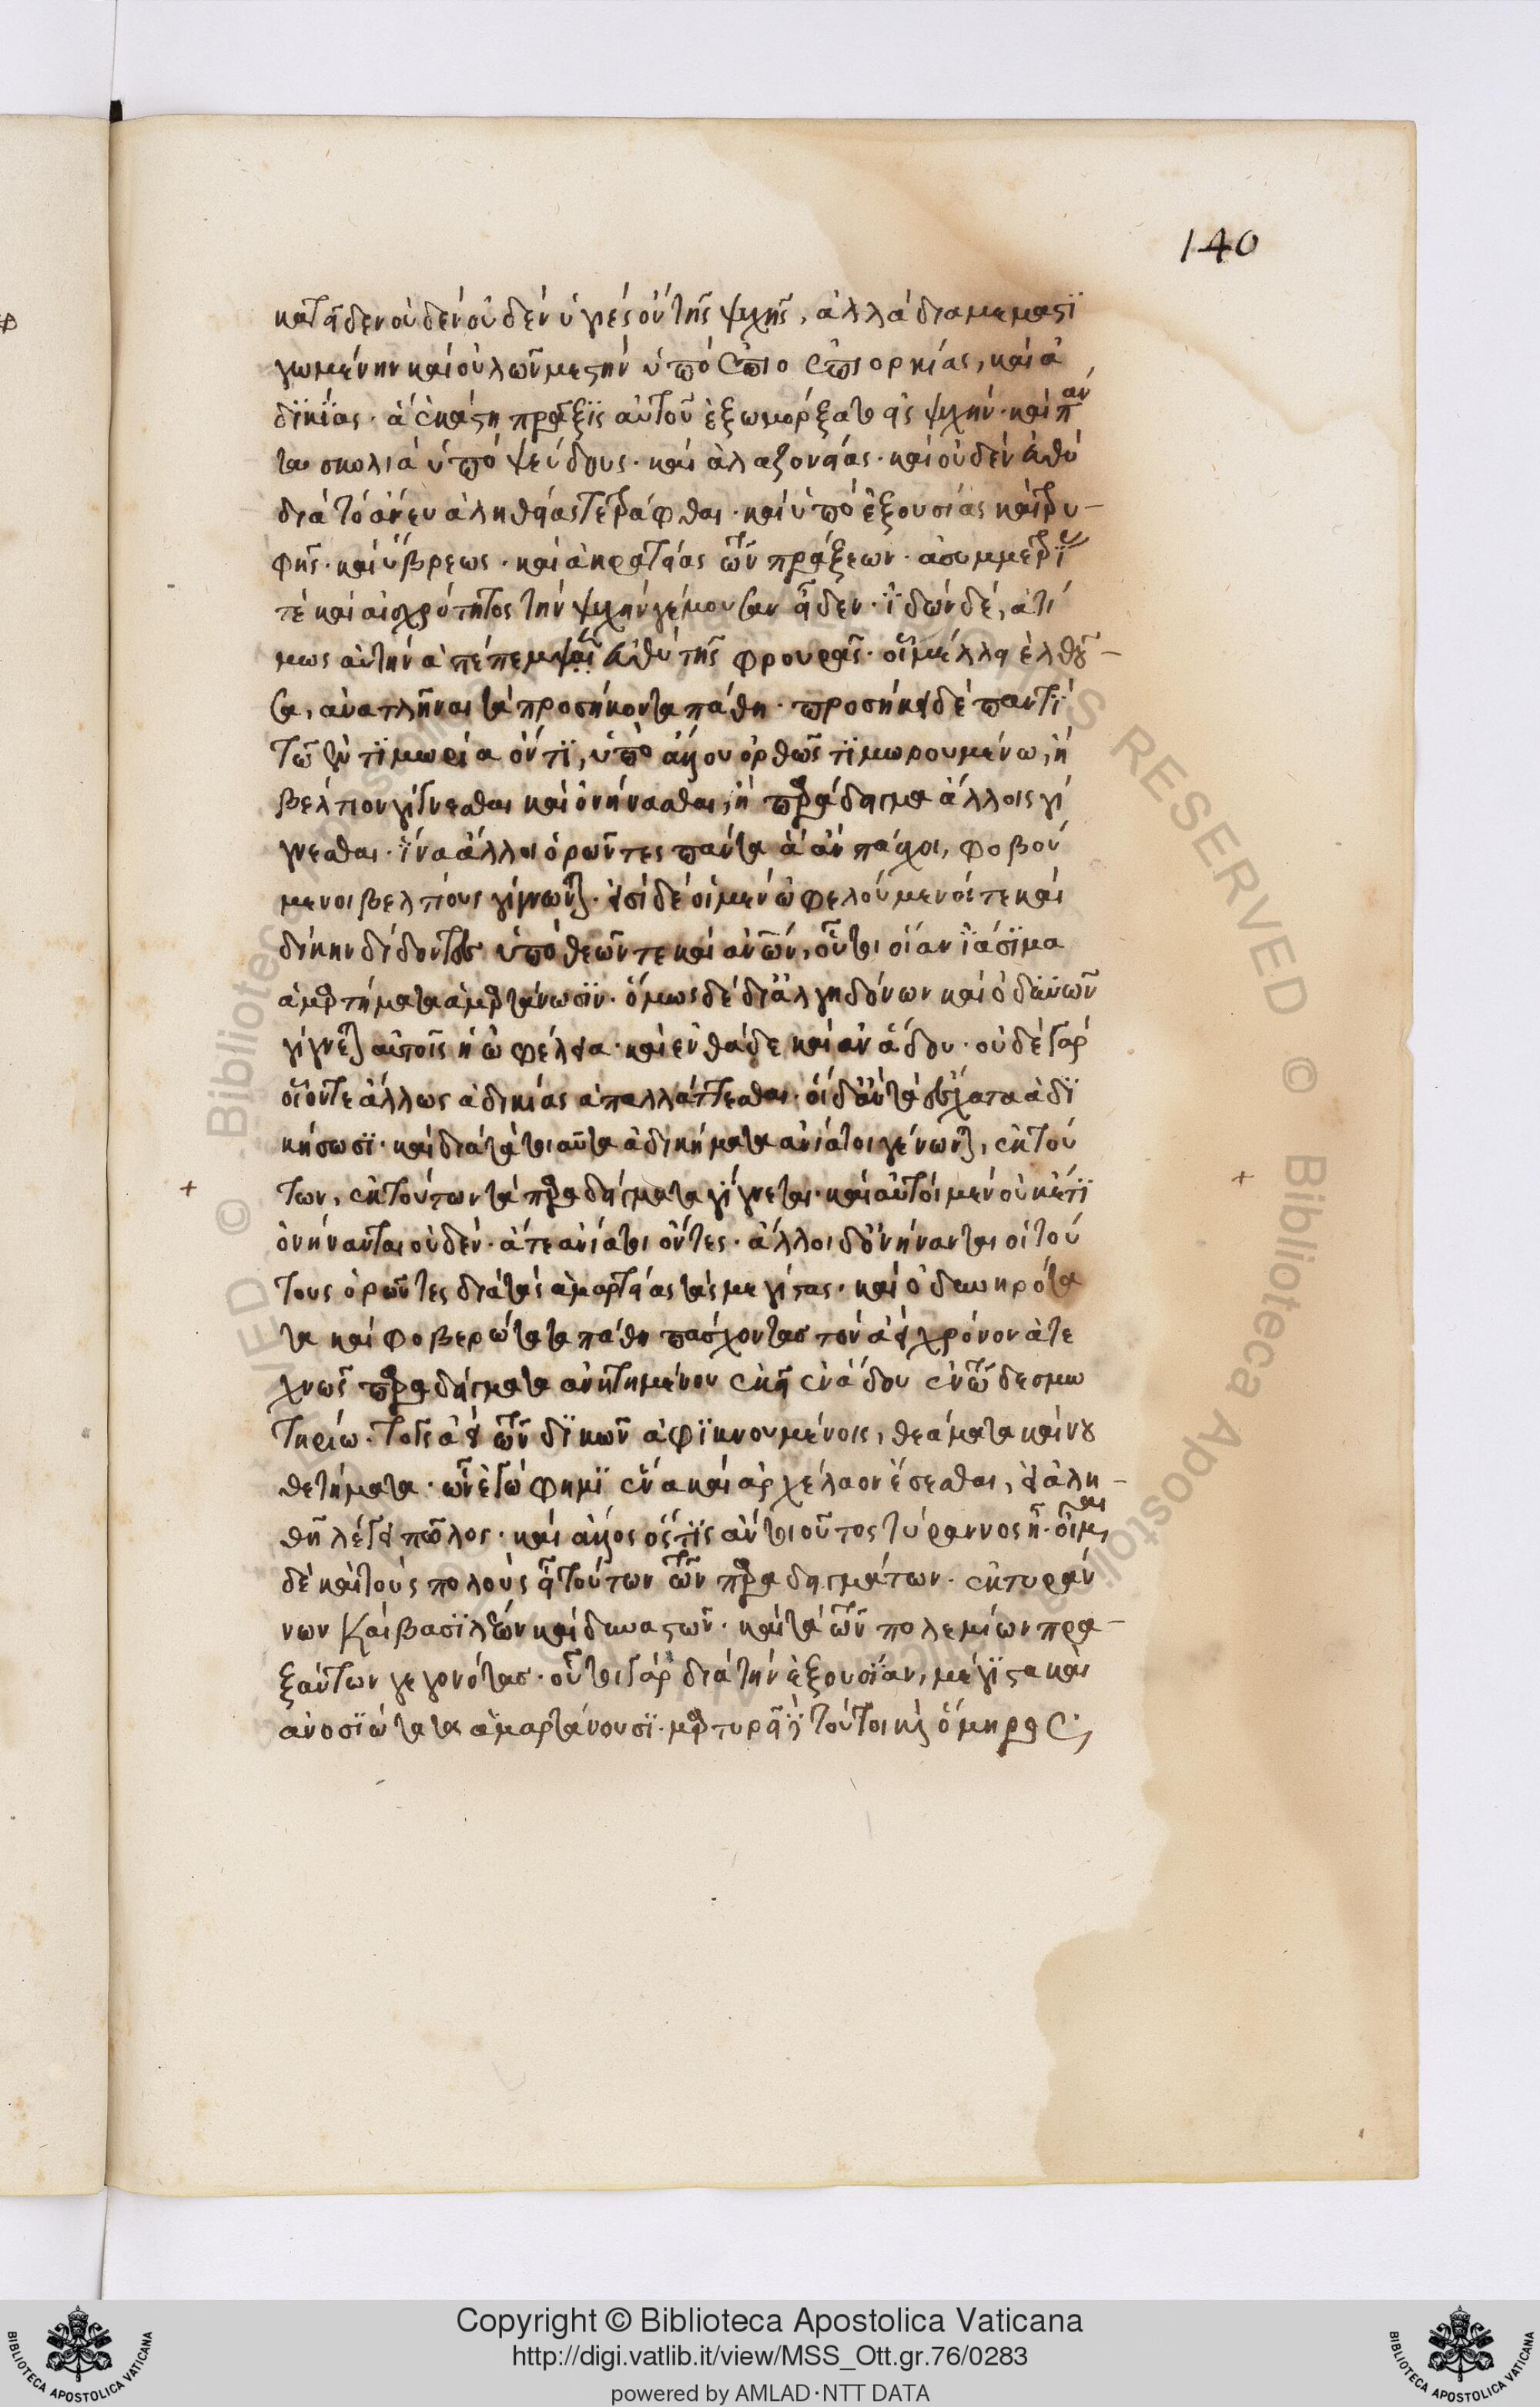 140
κατεῖδεν οὐδέν οὐδέν ὑγιές ὄν τῆς ψυχῆς, ἀλλά διαμεμαστϊ
γωμένην καί οὐλῶν μεστήν ὑπό ἐπιορκίας, καί ἀ
δϊκΐας· ἅ ἑκάστη πρᾶξϊς αὐτοῦ ἐξωμόρξατο εἰς ψυχήν· καί πάν
τα σκολιά ὑπό ψεύδους· καί ἀλαζονείας· καί οὐδέν εὐθύ
διά τό ἄνευ ἀληθείας τετράφθαι· καί ὑπό ἐξουσίας καί τρυ–
φῆς· καί ὕβρεως· καί ἀκρατείας τῶν πράξεων· ἀσυμμετρΐας
τέ καί αἰσχρότητος τήν ψυχήν γέμουσαν εἶδεν· ϊδών δέ, ἀτί
μως αὐτήν ἀπέπεμψεν εὐθύ τῆς φρουρᾶς· οἷ μέλλει ἐλθοῦ–
σα, ἀνατλῆναι τά προσήκοντα πάθη· προσήκει δέ παντΐ
τῶ ἐν τϊμωρία ὄντϊ, ὑπό ἄλλου ὀρθῶς τϊμωρουμένω, ἤ
βελτίονι γίγνεσθαι καί ὀνήνασθαι, ἤ παράδειγμα ἄλλοις γί
γνεσθαι· ἵνα ἄλλοι ὁρῶντες πάντα ἅ ἄν πάσχοι, φοβού
μενοι βελτίους γίγνωνται· εἰσί δέ οἱ μέν ὠφελούμενοί τε καί
δίκην διδόντες ὑπό θεῶν τε καί ἀνθρώπων, οὗτοι οἵ ἄν ἰάσϊμα
ἁμαρτήματα ἁμαρτάνωσϊν· ὅμως δέ δι' ἀλγηδόνων καί ὀδυνῶν
γίγνεται αὐτοῖς ἡ ὠφέλεια· καί ἐνθάδε καί ἐν ἅδου· οὐδέ γάρ
οἷόντε ἄλλως ἀδικίας ἀπαλλάττεσθαι· οἵ δ' ἄν τά ἔσχατα ἀδϊ
κήσωσϊ· καί διά τά τοιαῦτα ἀδικήματα ἀνίατοι γένωνται, ἐκ τού
των, ἐκ τούτων τά παραδείγματα γίγνεται· καί αὐτοί μέν οὐκέτϊ
ὀνήνανται οὐδέν· ἅτε ἀνίατοι ὄντες· ἄλλοι δ' ὀνήνανται οἱ τού
τους ὁρῶντες διά τάς ἁμαρτίας τάς μεγίστας· καί ὀδυνηρότα
τα καί φοβερώτατα πάθη πάσχοντας τόν ἀεί χρόνον ἀτε
χνῶς παραδείγματα ἀνηρτημένου ἐκεῖ ἐν ἅδου ἐν τῶ δεσμω
τηρίω· τοῖς ἀεί τῶν ἀδϊκων ἀφϊκνουμένοις, θεάματα καί νου
θετήματα· ὧν ἐγώ φημϊ ἕνα καί ἀρχέλαον ἔσεσθαι, εἰ ἀλη–
θῆ λέγει πῶλος· καί ἄλλος ὅστϊς ἄν τοιοῦτος τύραννος ἦ· οἶμαι
δέ καί τούς πολούς εἶναι τούτων τῶν παραδειγμάτων· ἐκ τυράν
νων καί βασϊλέων καί δυναστῶν· καί τά τῶν πολεμίων πρα–
ξάντων γεγονότας· οὗτοι γάρ διά τήν ἐξουσΐαν, μέγϊστα καί
ἀνοσϊώτατα ἁμαρτάνουσϊ· μαρτυρεῖ δέ τούτοις καί ὅμηρος·
+
+
Copyright © Biblioteca Apostolica Vaticana
http://digi.vatlib.it/view/MSS_Ott.gr.76/0283
powered by AMLAD·NTT DATA
BIBLIOTECA APOSTOLICA VATICANA
BIBLIOTECA APOSTOLICA VATICANA